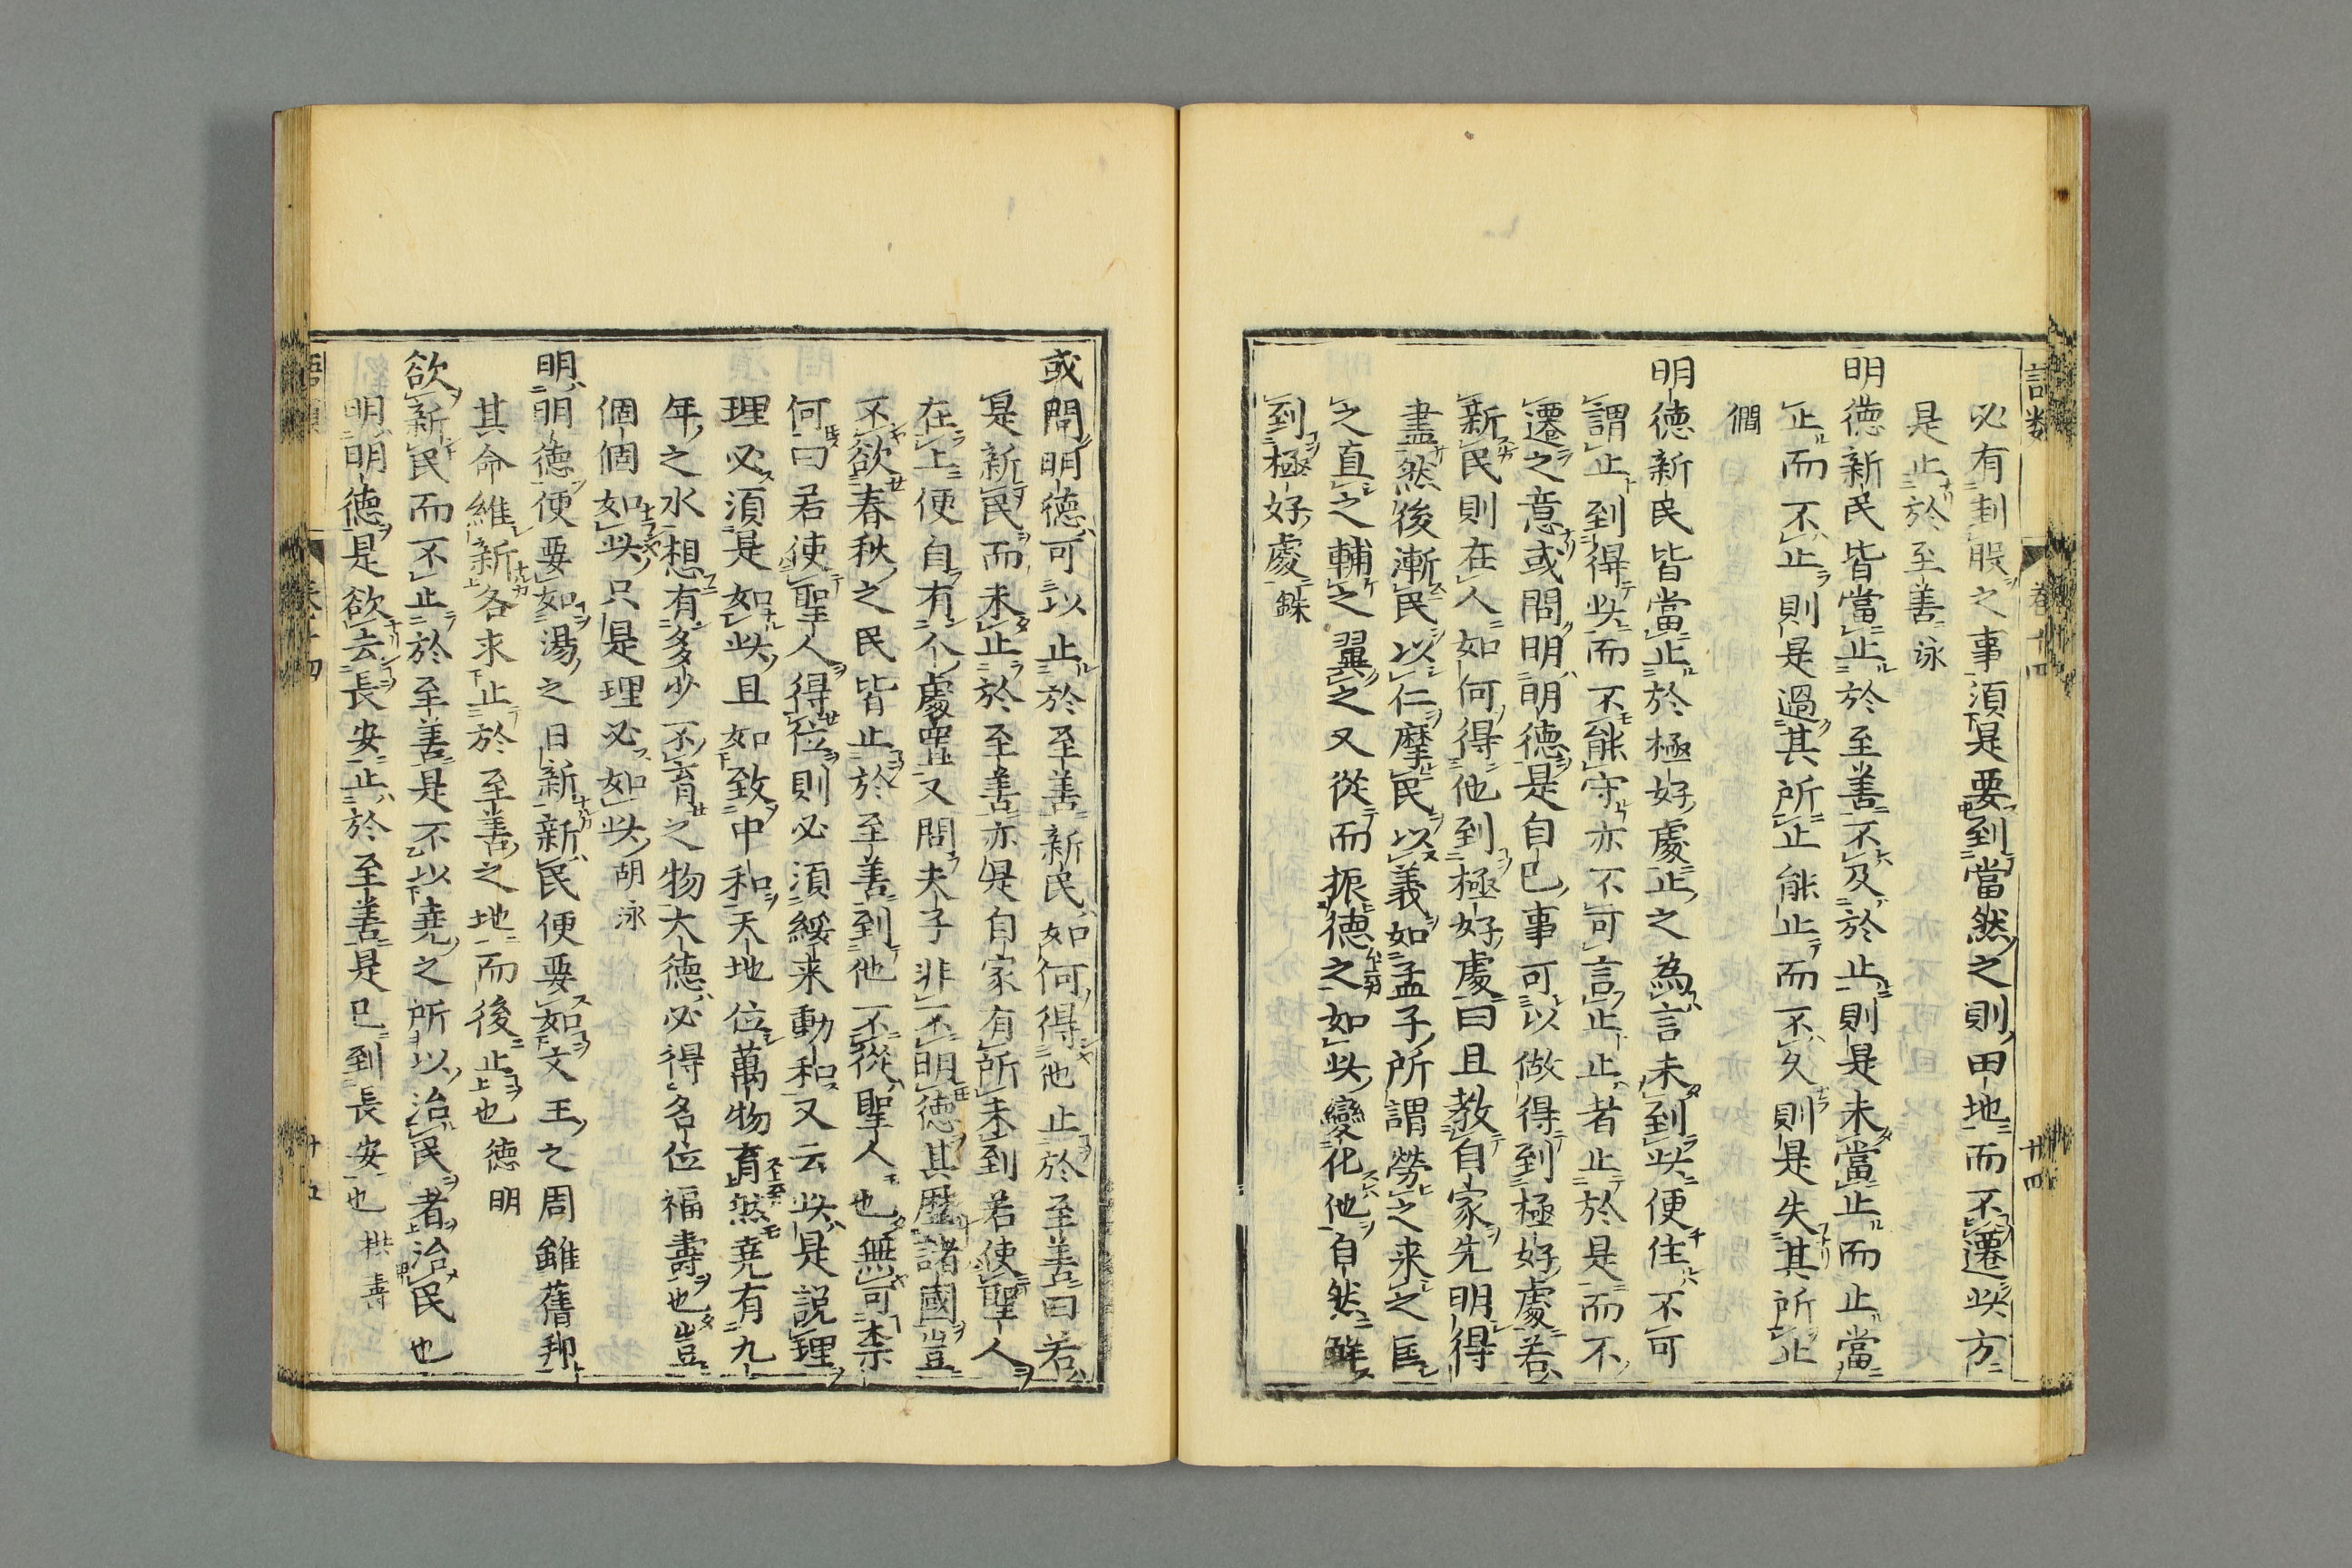 必有剨骰之事須是要到當然之則田地而不遷此方
是止於至善泳
明徳新民皆當止於至善不及於止則是未當止而止當
止而不止則是過其所止能止而不久則是失其所止
僩
明徳新民皆當止於極好處止之為言未到此便住不可
謂止到得此而不能守亦不可言止止者止於是而不
遷之意或問明明徳是自已事可以做得到極好處若
新民則在人如何得他到極好處曰且教自家先明得
盡然後漸民以仁摩民以義如孟子所謂勞之来之匡
之直之輔之翼之又從而振徳之如此變化他自然
到極好處銖
或問明徳可以止於至善新民如何得他止於至善曰若
是新民而未止於至善亦是自家有所未到若使聖人
在上便自有个處置又問夫子非不明徳其歴諸國豈
不欲春秋之民皆止於至善到他不從聖人也無可柰
何曰若使聖人得位則必須綏来動和又云此是説理
理必須是如此且如致中和天地位萬物育然堯有九
年之水想有多少不育之物大徳必得名位福壽也豈
個個如此只是理必如此胡泳
明明徳便要如湯之日新新民便要如文王之周雖舊邦
其命維新各求止於至善之地而後止也徳明
欲新民而不止於至善是不以堯之所以治民者治民也
明明徳是欲去長安止於至善是已到長安也拱壽
卷十四
廿四